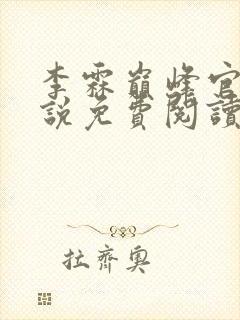 李霖巔峰官
說免費閱讀
拉齊奧